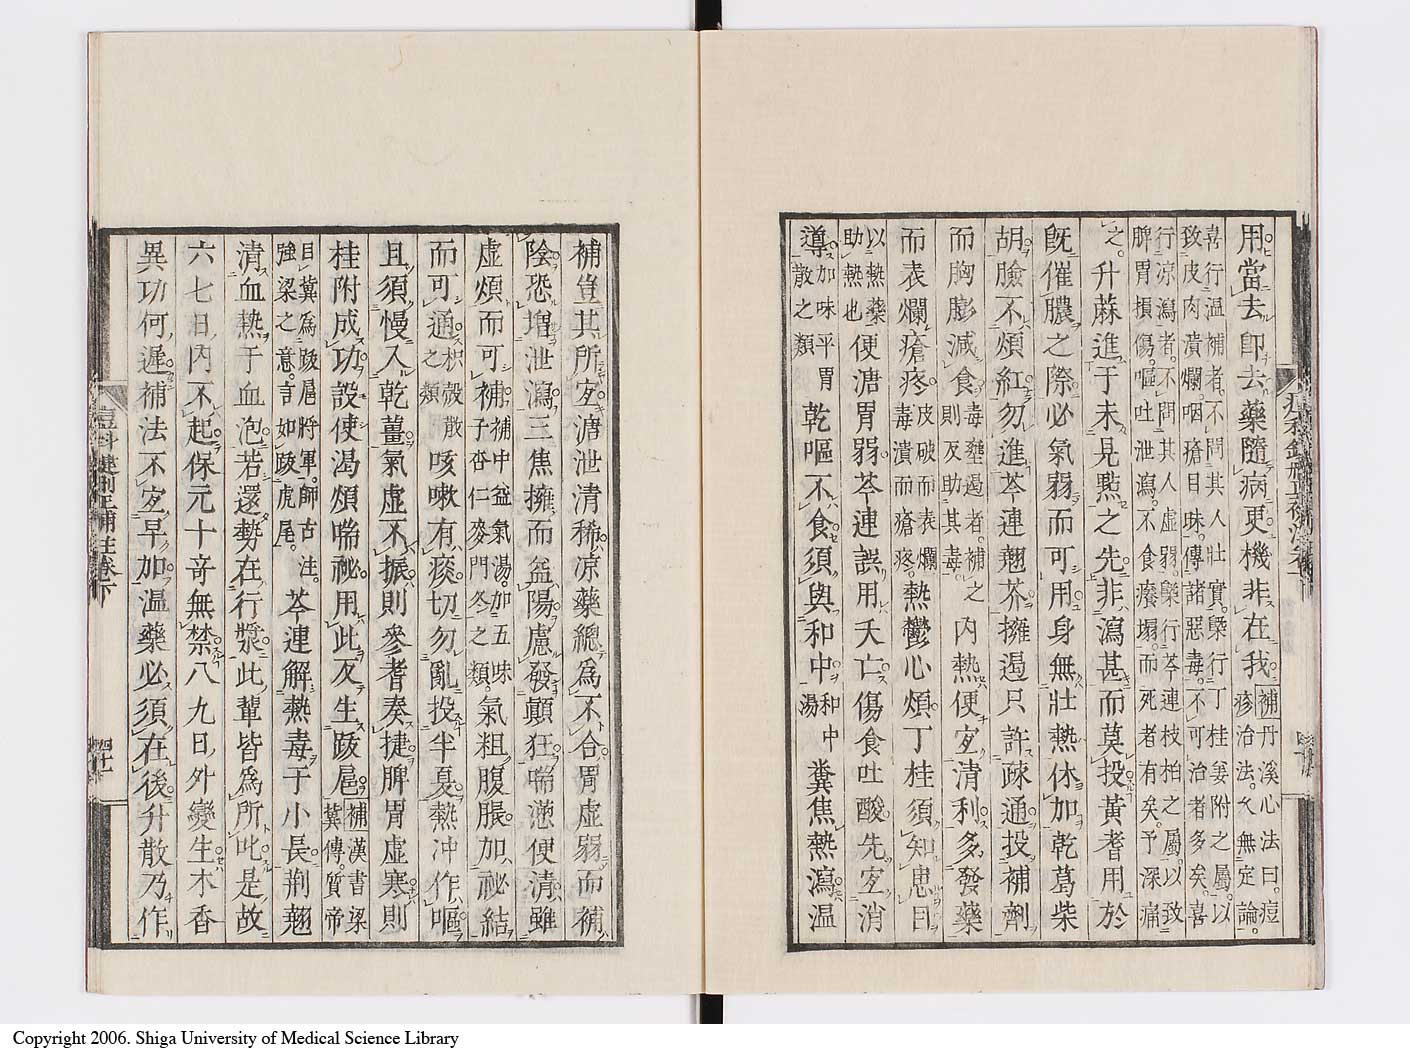 用當去卽去藥隨病更機非在我補丹溪心法曰痘
疹治法久無定論
喜行溫補者不問其人壯實㮣行丁桂姜附之屬以
致皮肉潰爛咽瘡目昧傳諸惡毒不可治者多矣喜
行凉瀉者不問其人虛弱㮣行芩連枝柏之屬以致
脾胃損傷嘔吐泄瀉不食癢塌而死者有矣予深痛
之升蔴進于未見㸃之先非瀉甚而莫投黃耆用於
旣催膿之際必氣弱而可用身無壯熱休加乾葛柴
胡臉不煩紅勿進芩連翹芥擁遏只許疎通投補劑
而胸膨減食毒壅遏者補之
則反助其毒內熱便宐清利多發藥
而表爛瘡疼皮破而表爛
毒潰而瘡疼熱鬱心煩丁桂須知忠曰
以熱藥
助熱也便溏胃弱芩連誤用夭亡傷食吐酸先宐消
導加味平胃
散之類乾嘔不食須與和中和中
湯糞焦熱瀉溫
補豈其所宐溏泄清稀凉藥總爲不合胃虛弱而補
陰恐增泄瀉三焦擁而益陽慮發顛狂喘懣便清雖
虛煩而可補補中益氣湯加五味
子杏仁麥門冬之類氣粗腹脹加祕結
而可通枳殼散
之類咳嗽有痰切勿亂投半夏熱冲作嘔
且須慢入乾薑氣虛不振則參耆奏捷脾胃虛寒則
桂附成功設使渴煩喘祕用此反生跋扈補漢書梁
冀傳質帝
目冀爲跋扈將軍師古注
強梁之意言如跋虎尾芩連解熱毒于小長荆翹
清血熱于血泡若還勢在行漿此輩皆爲所叱是故
六七日內不起保元十竒無禁八九日外變生木香
異功何遲補法不宐早加溫藥必須在後升散乃作
痘科鍵刪正補注卷下
四十七